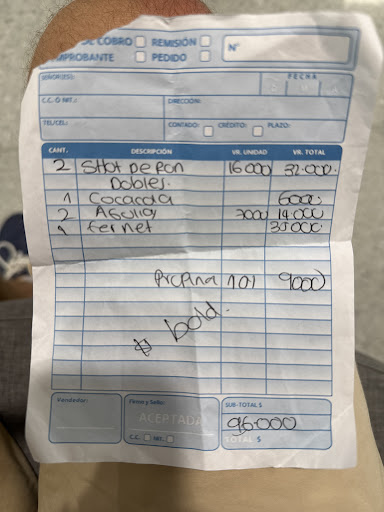 DE COBRO REMISIÓN N°
MPROBANTE PEDIDO
SEÑOR(ES): FECHA
D M A
C.C. O NIT.: DIRECCIÓN:
TEL/CEL.: CONTADO: CRÉDITO: PLAZO:
CANT. DESCRIPCIÓN VR. UNIDAD VR. TOTAL
2 SHot De Ron 16000 32.000.
Dobles.
1 Cocacola 6000
2 Aguila 7000 14.000
1 fernet 35000
Propina 10% 9000
$ bold.
Vendedor: Firma y Sello: SUB-TOTAL $
ACEPTADA 96.000
C.C. NIT. TOTAL $